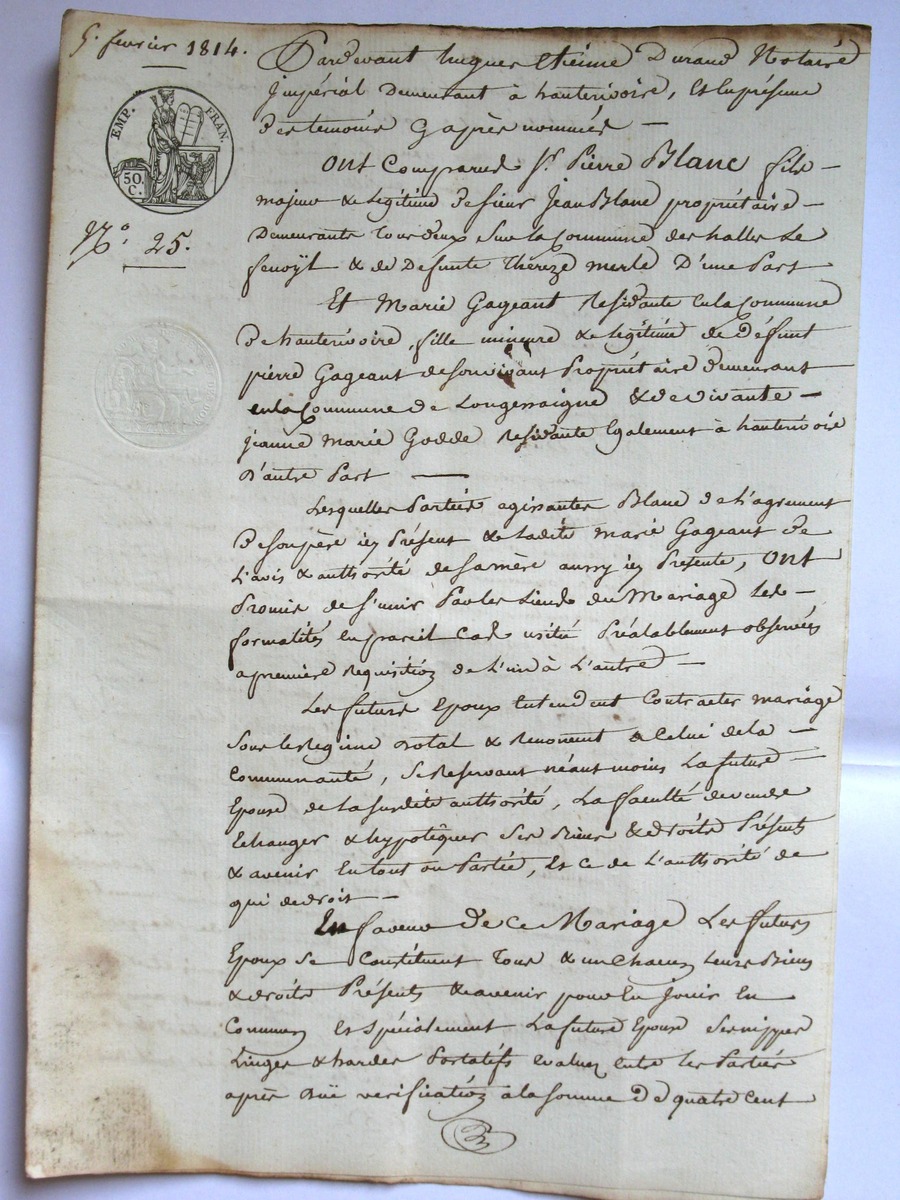 5. fevrier 1814.
EMP. FRAN.
50. C.
N.o 25.
Pardevant hugues Etienne Durand Notaire
Impérial Demeurant à hauterivoire, Et En présence
des temoins Cy après nommés —
Ont Comparus Sr. Pierre Blanc fils —
majeur & Légitime De Sieur Jean Blanc propriétaire —
Demeurants tous deux Sur la Commune des halles Le
fenoÿl & de Defunte Thereze merle D'une Part
Et Marie Gageant Residante en la Commune
De hauterivoire, fille mineure & Légitime de Défunt
pierre Gageant de Son vivant Propriétaire demeurant
en la Commune de Longessaigne & de vivante —
jeanne Marie Godde Residante Egalement à hauterivoire
D'autre Part —
Lesquelles Parties agissantes Blanc de L'agrement
De Son père icy Présent & Ladite marie Gageant De
L'avis & authorité de Sa mère aussy icy Presente, Ont
Promis de S'unir Par les Liens du Mariage Les —
formalités En pareil Cas usités Préalablement observées
a première Requisition de L'un à L'autre —
Les futurs Epoux Entendent Contracter mariage
Sous le Regime Dotal & Renoncent a Celui de la —
Communauté, Se Reservant néant moins La future —
Epouse de La Susdite authorité, La faculté de vendre
Echanger & hypotéquer Ses Biens & droits Présents
& avenir En tout ou Partie, Et Ce de L'authorité de
qui de droit —
En faveur De Ce Mariage Les futurs
Epoux Se Constituent Tous & un Chacun Leurs Biens
& droits Présents & avenir pour En Jouir En
Commun Et Spécialement La future Epouse Ses nippes
Linges & hardes Portatifs Evaluez Entre les Parties
après Düe verification a la Somme De quatre Cent